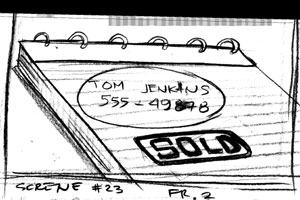 TOM JENKINS
555-49878
SOLD
SCRENE #23 FR. 2